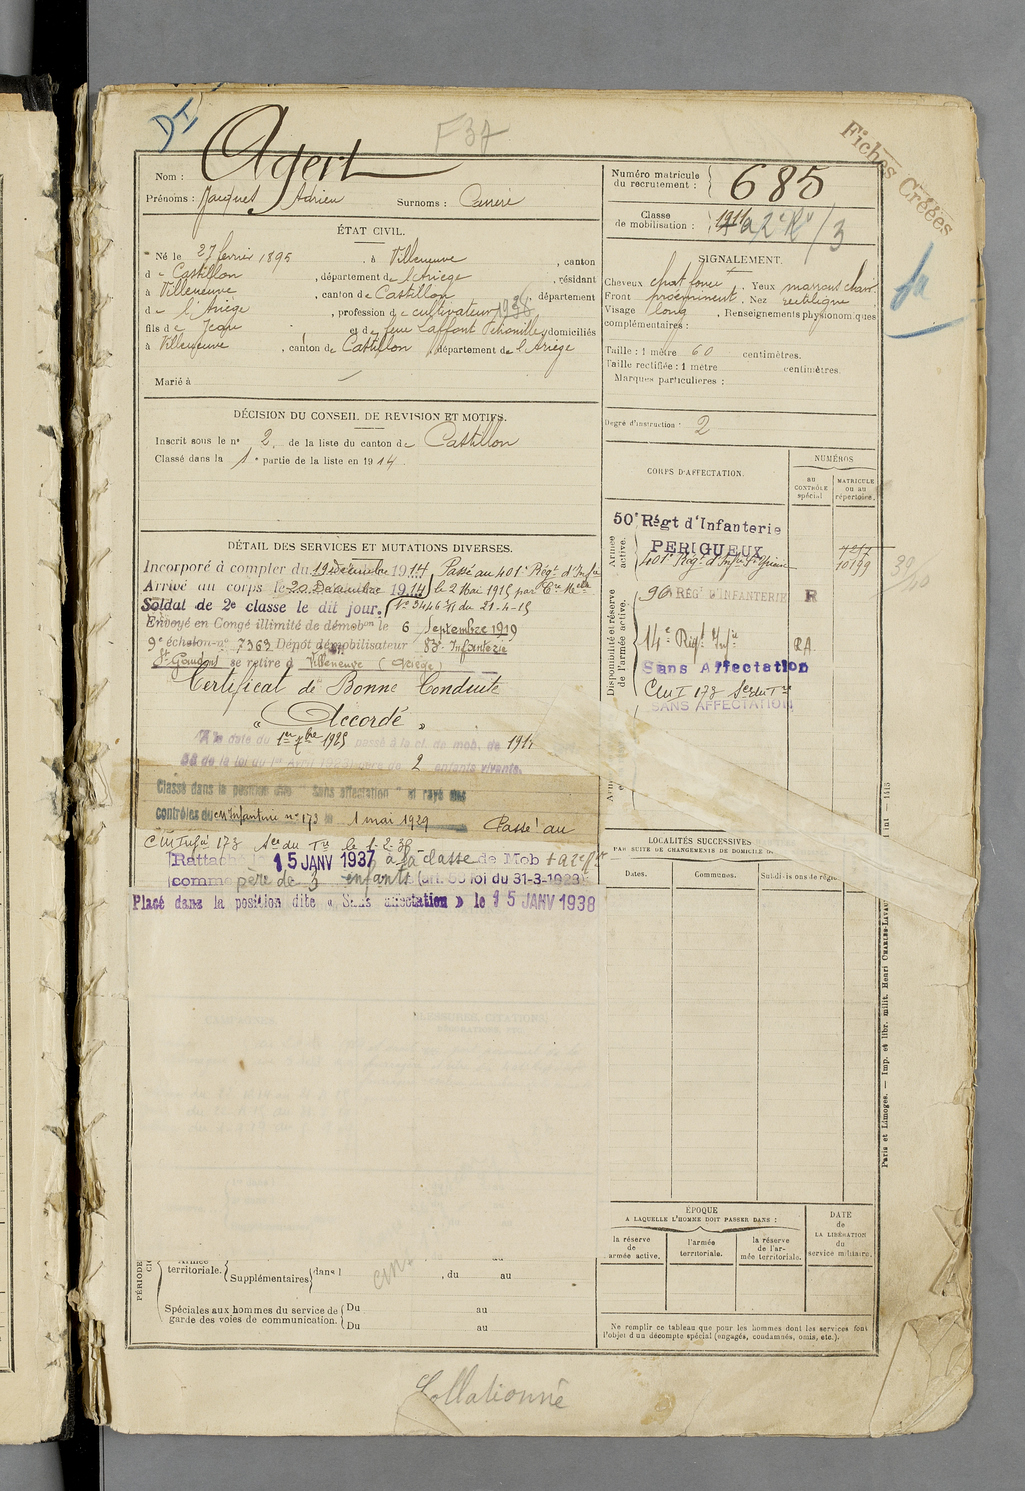 DI
F 37
Fiches Créées
Nom : Agert
Prénoms : Jacques Adrien Surnoms :
Numéro matricule
du recrutement : 685
Classe
de mobilisation :
/3
ÉTAT CIVIL.
Né le 27 février 1895, à Villeneuve, canton
de Castillon, département de l'Ariège, résidant
à Villeneuve, canton de Castillon, département
de l'Ariège, profession de cultivateur
fils de Jean et de feue Laffont Pétronille, domiciliés
à Villeneuve, canton de Castillon, département de l'Ariège
Marié à
SIGNALEMENT.
Cheveux chat foncé, Yeux marrons clairs
Front proéminent, Nez rectiligne
Visage long, Renseignements physionomiques
complémentaires :
Taille : 1 mètre 60 centimètres.
Taille rectifiée : 1 mètre centimètres.
Marques particulières :
Degré d'instruction : 2
DÉCISION DU CONSEIL DE REVISION ET MOTIFS.
Inscrit sous le n° 2 de la liste du canton de Castillon
Classé dans la 1e partie de la liste en 1914.
DÉTAIL DES SERVICES ET MUTATIONS DIVERSES.
Incorporé à compter du 19 décembre 1914 Passé au 401e Régt d'Infie
Arrivé au corps le 20 Décembre 1914 le 2 Mai 1915 par
Soldat de 2e classe le dit jour. n° 3446 du 21-4-15
Envoyé en Congé illimité de démobon le 6 Septembre 1919
9e échelon n° 7363 Dépôt démobilisateur 83e Infanterie
St Gaudens se retire à Villeneuve (Ariège)
Certificat de Bonne Conduite
« Accordé »
A la date du 1er 7bre 1925 passé à la cl. de mob. de 1911
58 de la loi du 1er Avril 1923 père de 2 enfants vivants.
Classé dans la position dite " Sans affectation " et rayé des
contrôles du cm Infanterie n° 173 le 1 mai 1929 Passé au
Cm Infie 173 Son du Tre le 1-2-36
Rattaché le 15 JANV 1937 à la classe de Mob
comme père de 3 enfants (art. 58 loi du 31-3-1928)
Placé dans la position dite « Sans affectation » le 15 JANV 1938
CORPS D'AFFECTATION.
NUMÉROS
au
CONTRÔLE
spécial
MATRICULE
ou au
répertoire.
Armée
active.
50e Régt d'Infanterie
PERIGUEUX
401e Régt d'Infie
10199
Disponibilité et réserve
de l'armée active.
96e RÉGT D'INFANTERIE R
14e Régt Infie RA
Sans Affectation
Cm I 173 Son du Tre
SANS AFFECTATION
LOCALITÉS SUCCESSIVES
PAR SUITE DE CHANGEMENTS DE DOMICILE
Dates. Communes.
ÉPOQUE
A LAQUELLE L'HOMME DOIT PASSER DANS :
la réserve
de
armée active.
l'armée
territoriale.
la réserve
de l'ar-
mée territoriale.
DATE
de
LA LIBÉRATION
du
service militaire.
territoriale. Supplémentaires dans l , du au
Spéciales aux hommes du service de Du au
garde des voies de communication. Du au
Ne remplir ce tableau que pour les hommes dont les services font
l'objet d'un décompte spécial (engagés, condamnés, omis, etc.).
Paris et Limoges. — Imp. et libr. milit. Henri CHARLES-LAVAUZELLE
Collationné